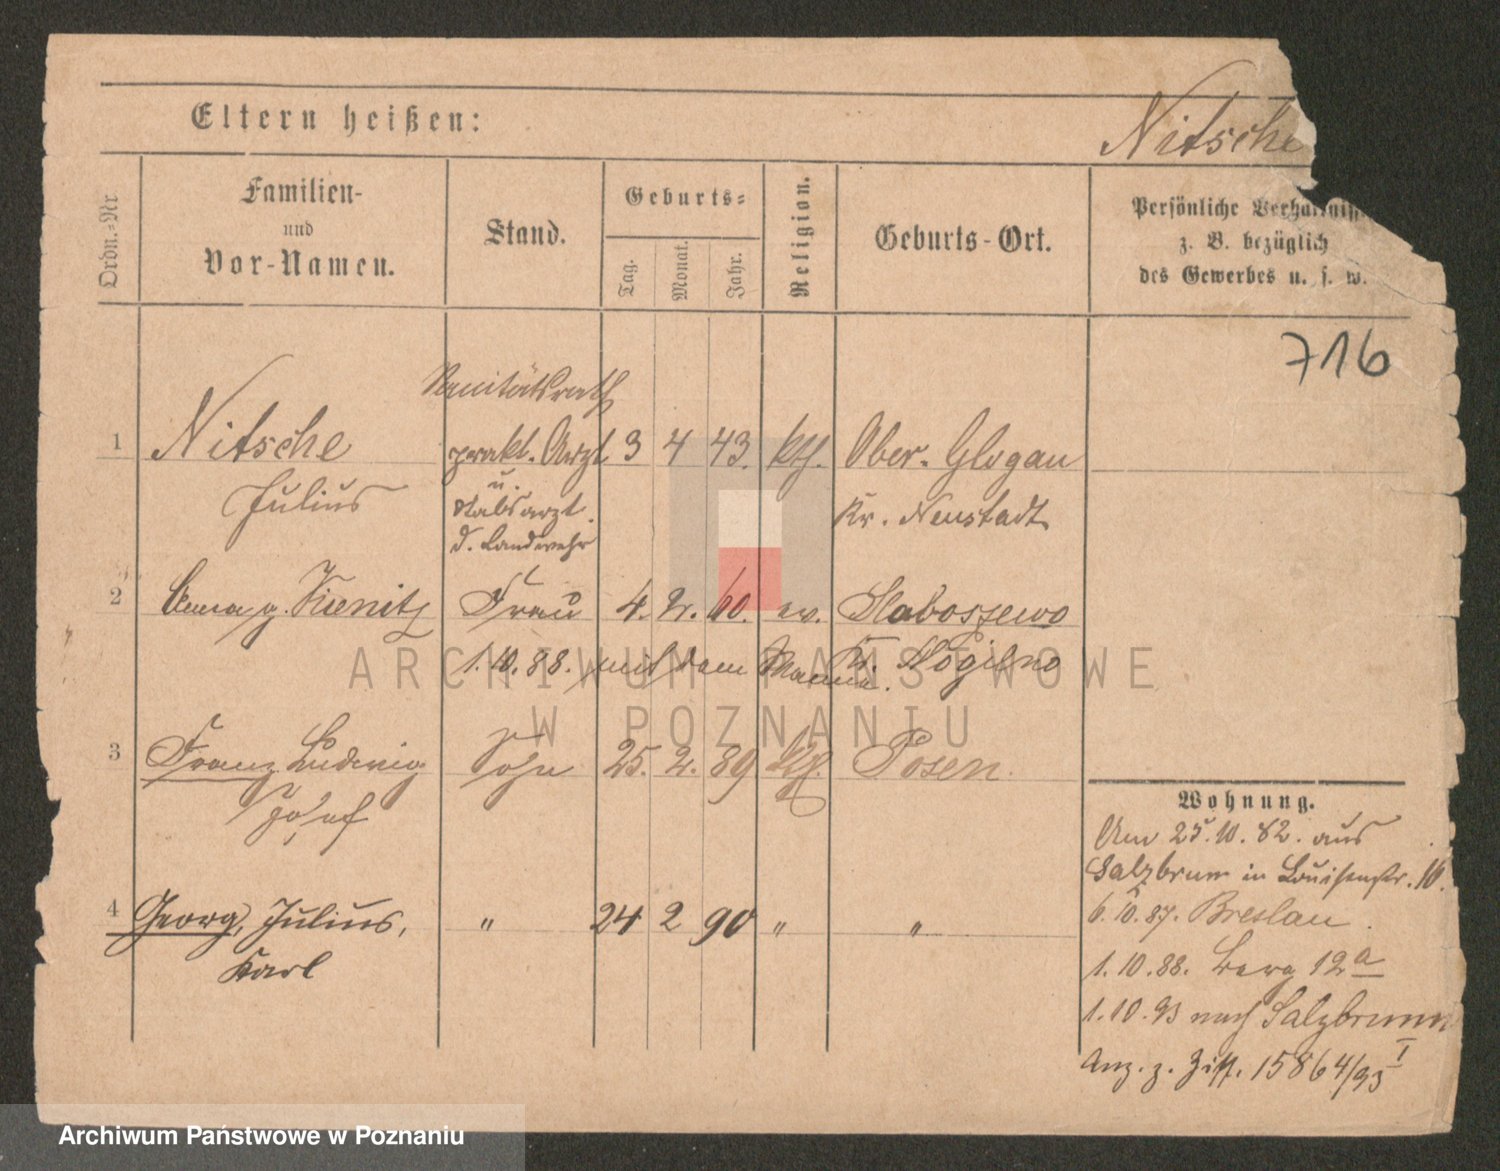 Eltern heißen:
Nitsche
Ordn.-Nr
Familien-
und
Vor-Namen.
Stand.
Geburts-
Tag.
Monat.
Jahr.
Religion.
Geburts-Ort.
Persönliche Verhältniss
z. B. bezüglich
des Gewerbes u. s. w.
716
Sanitätsrath
1 Nitsche prakt. Arzt 3 4 43. kth. Ober-Glogau
Julius u. Stabsarzt Kr. Neustadt
d. Landwehr
2 Anna g. Kienitz Frau 4. 2. 60. ev. Slaboszewo
1.10.88. mit dem Manne. Kr. Mogilno
ARCHIWUM PAŃSTWOWE
W POZNANIU
3 Franz Ludwig Sohn 25. 2. 89 kth. Posen.
Josef
Wohnung.
Am 25.10.82. aus
Salzbrunn in Louisenstr. 16.
4 Georg, Julius, " 24 2 90 " "
Karl
6.10.87. Breslau.
1.10.88. Berg 12a
1.10.93 nach Salzbrunn
Anz. z. Ziff. 15864/93 I
Archiwum Państwowe w Poznaniu